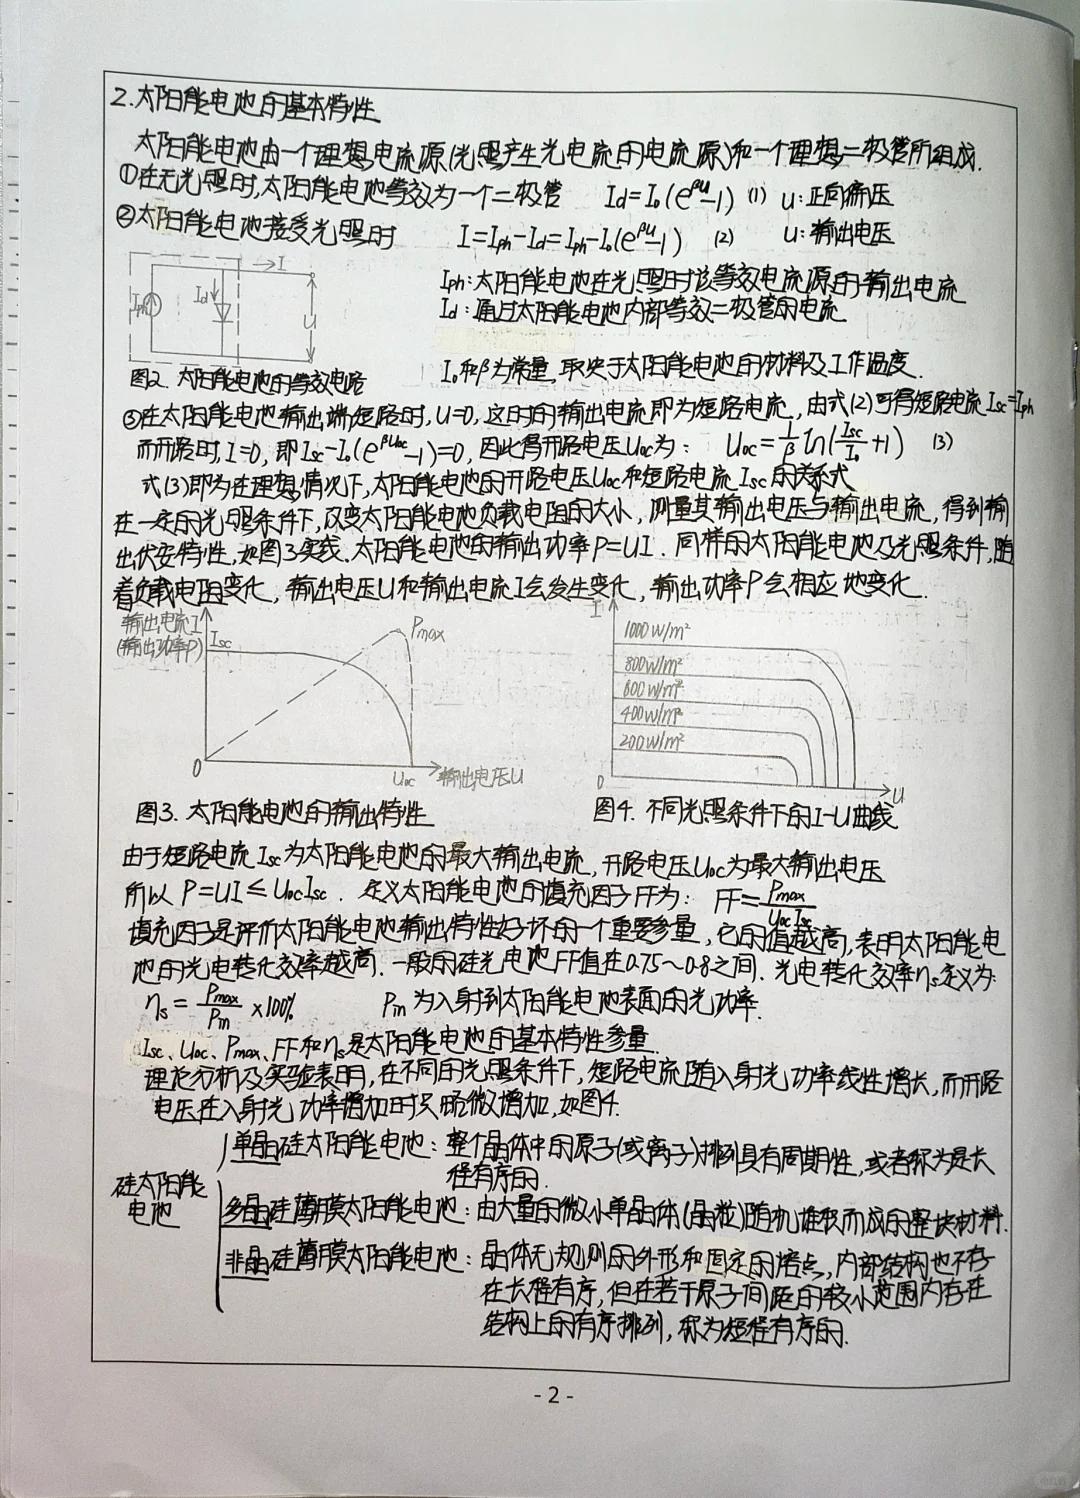 2.太阳能电池的基本特性
太阳能电池由一个理想电流源(光照产生光电流的电流源)和一个理想二极管所组成.
①在无光照时,太阳能电池等效为一个二极管 Id=I₀(e^βU-1) (1) U:正向偏压
②太阳能电池接受光照时 I=Iph-Id=Iph-I₀(e^βU-1) (2) U:输出电压
→I
Iph Id U
Iph:太阳能电池在光照时该等效电流源的输出电流
Id:通过太阳能电池内部等效二极管的电流
I₀和β为常量,取决于太阳能电池的材料及工作温度.
图2.太阳能电池的等效电路
③在太阳能电池输出端短路时,U=0,这时的输出电流即为短路电流,由式(2)可得短路电流Isc=Iph
而开路时,I=0,即Isc-I₀(e^βUoc-1)=0,因此得开路电压Uoc为: Uoc=1/β ln(Isc/I₀+1) (3)
式(3)即为在理想情况下,太阳能电池的开路电压Uoc和短路电流Isc的关系式
在一定的光照条件下,改变太阳能电池负载电阻的大小,测量其输出电压与输出电流,得到输
出伏安特性,如图3实线.太阳能电池的输出功率P=UI.同样的太阳能电池及光照条件,随
着负载电阻变化,输出电压U和输出电流I会发生变化,输出功率P会相应地变化.
输出电流I
(输出功率P)
Isc
Pmax
0
Uoc
输出电压U
I
1000w/m²
800w/m²
600w/m²
400w/m²
200w/m²
0
U
图3.太阳能电池的输出特性
图4.不同光照条件下的I-U曲线
由于短路电流Isc为太阳能电池的最大输出电流,开路电压Uoc为最大输出电压
所以P=UI≤UocIsc.定义太阳能电池的填充因子FF为: FF=Pmax/UocIsc
填充因子是评价太阳能电池输出特性好坏的一个重要参量,它的值越高,表明太阳能电
池的光电转化效率越高.一般的硅光电池FF值在0.75~0.8之间.光电转化效率ηs定义为:
ηs=Pmax/Pin×100% Pin为入射到太阳能电池表面的光功率.
Isc、Uoc、Pmax、FF和ηs是太阳能电池的基本特性参量.
理论分析及实验表明,在不同的光照条件下,短路电流随入射光功率线性增长,而开路
电压在入射光功率增加时只略微增加,如图4.
硅太阳能
电池
单晶硅太阳能电池:整个晶体中的原子(或离子)排列具有周期性,或者称为是长
程有序的.
多晶硅薄膜太阳能电池:由大量的微小单晶体(晶粒)随机堆积而成的整块材料.
非晶硅薄膜太阳能电池:晶体无规则的外形和固定的熔点,内部结构也不存
在长程有序,但在若干原子间距的较小范围内存在
结构上的有序排列,称为短程有序的.
- 2 -